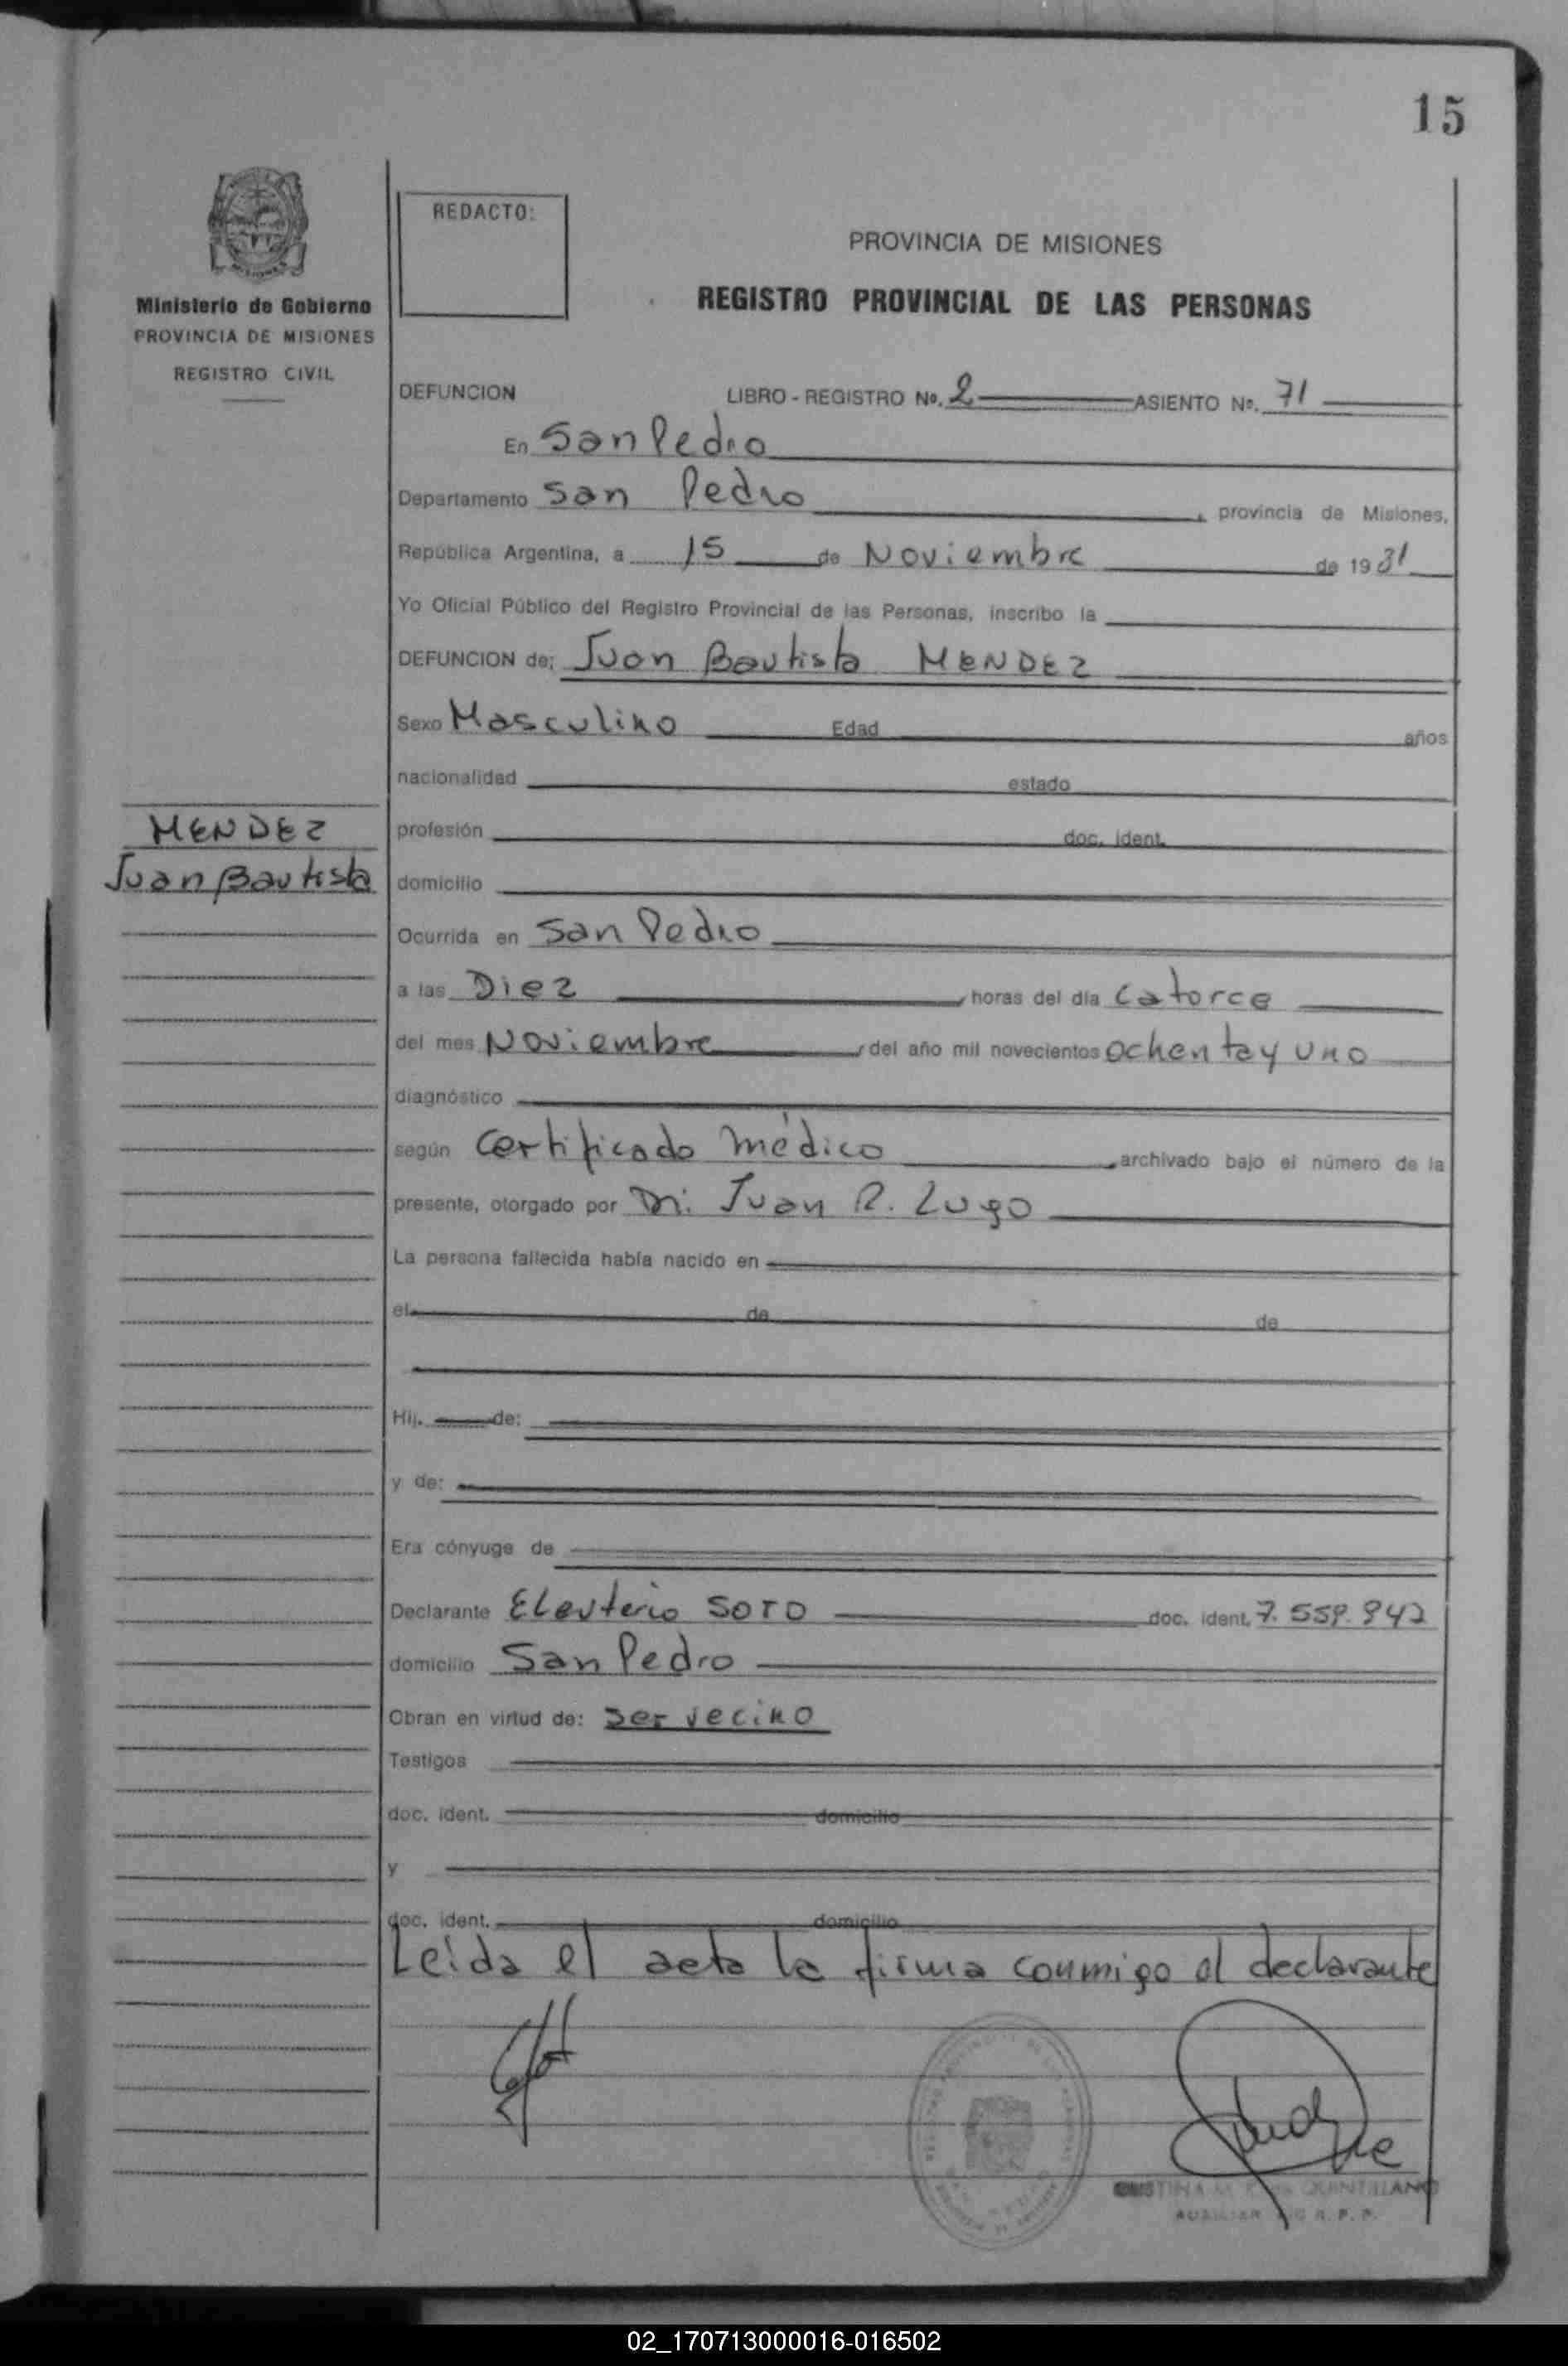 15
REDACTO:
PROVINCIA DE MISIONES
REGISTRO PROVINCIAL DE LAS PERSONAS
Ministerio de Gobierno
PROVINCIA DE MISIONES
REGISTRO CIVIL
DEFUNCION LIBRO - REGISTRO Nº. 2 ASIENTO Nº. 71
En San Pedro
Departamento San Pedro, provincia de Misiones,
República Argentina, a 15 de Noviembre de 1981
Yo Oficial Público del Registro Provincial de las Personas, inscribo la
DEFUNCION de: Juan Bautista MENDEZ
Sexo Masculino Edad años
nacionalidad estado
MENDEZ
Juan Bautista
profesión doc. ident.
domicilio
Ocurrida en San Pedro
a las Diez, horas del día Catorce
del mes Noviembre, del año mil novecientos ochenta y uno
diagnóstico
según Certificado médico, archivado bajo el número de la
presente, otorgado por Dr. Juan R. Lugo
La persona fallecida había nacido en
el de de
Hij. de:
y de:
Era cónyuge de
Declarante Eleuterio SOTO doc. ident. 7.559.942
domicilio San Pedro
Obran en virtud de: Ser vecino
Testigos
doc. ident. domicilio
y
doc. ident. domicilio
Leida el acta la firma conmigo el declarante
QUINTILLANO
AUXILIAR R. P. P.
02_170713000016-016502